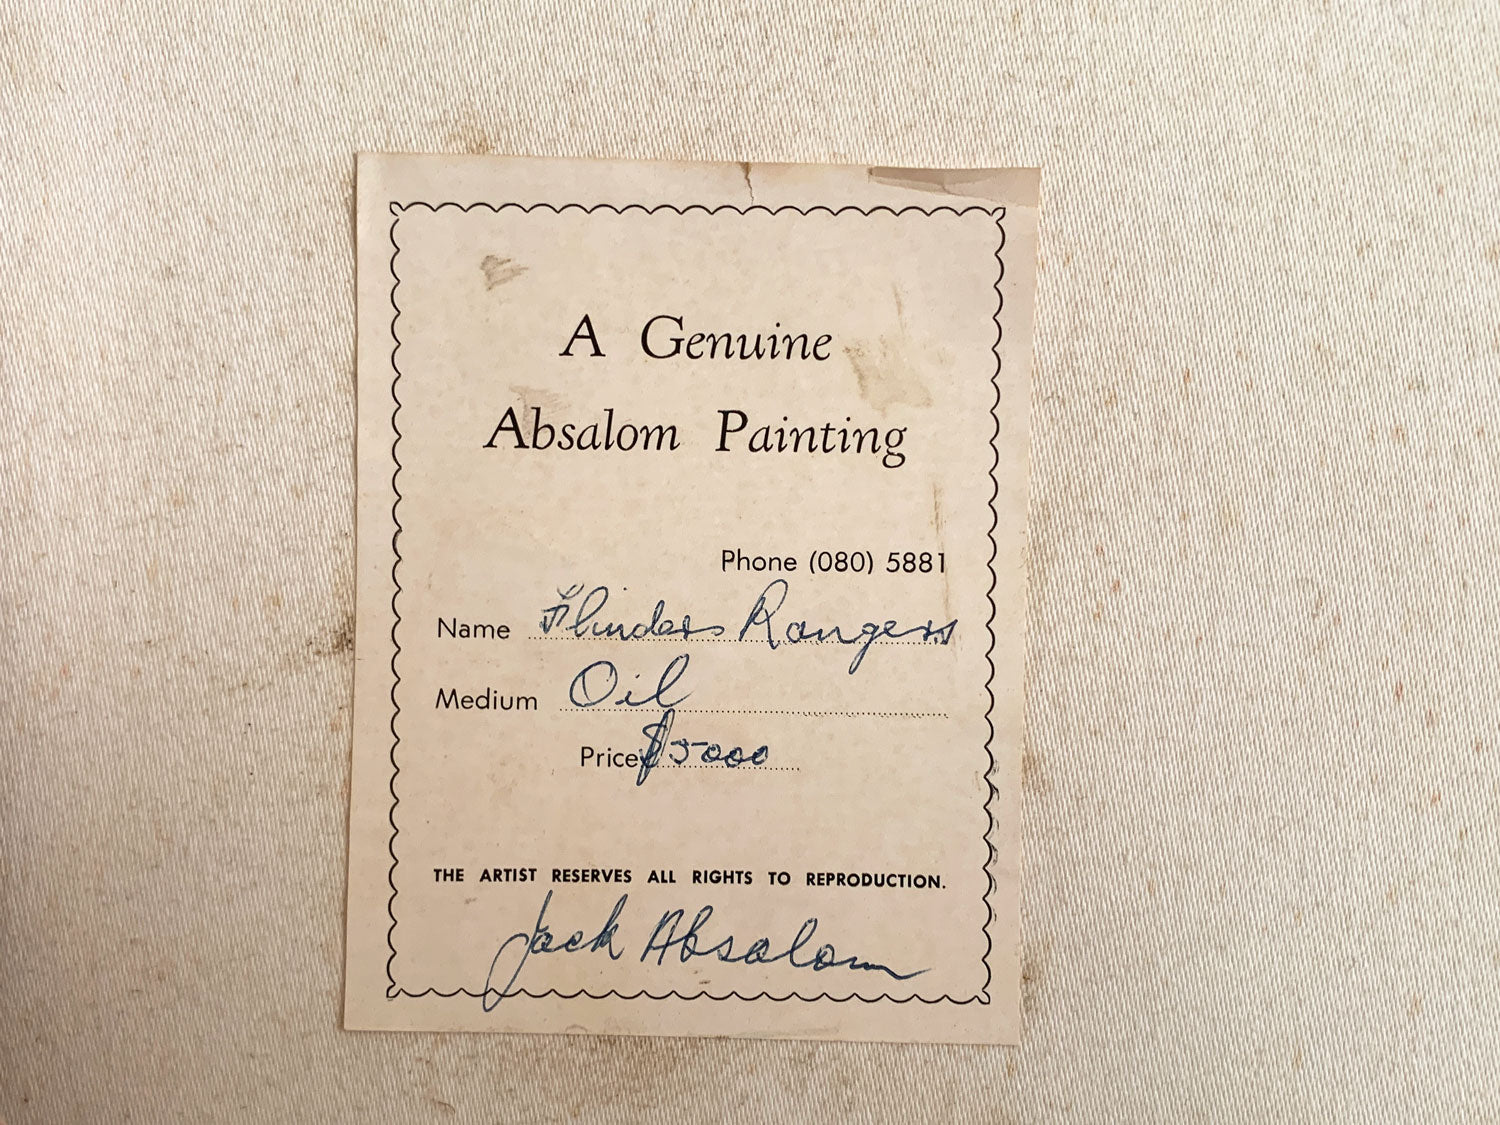 A Genuine
Absalom Painting
Phone (080) 5881
Name Flinders Rangers
Medium Oil
Price $5000
THE ARTIST RESERVES ALL RIGHTS TO REPRODUCTION.
Jack Absalom